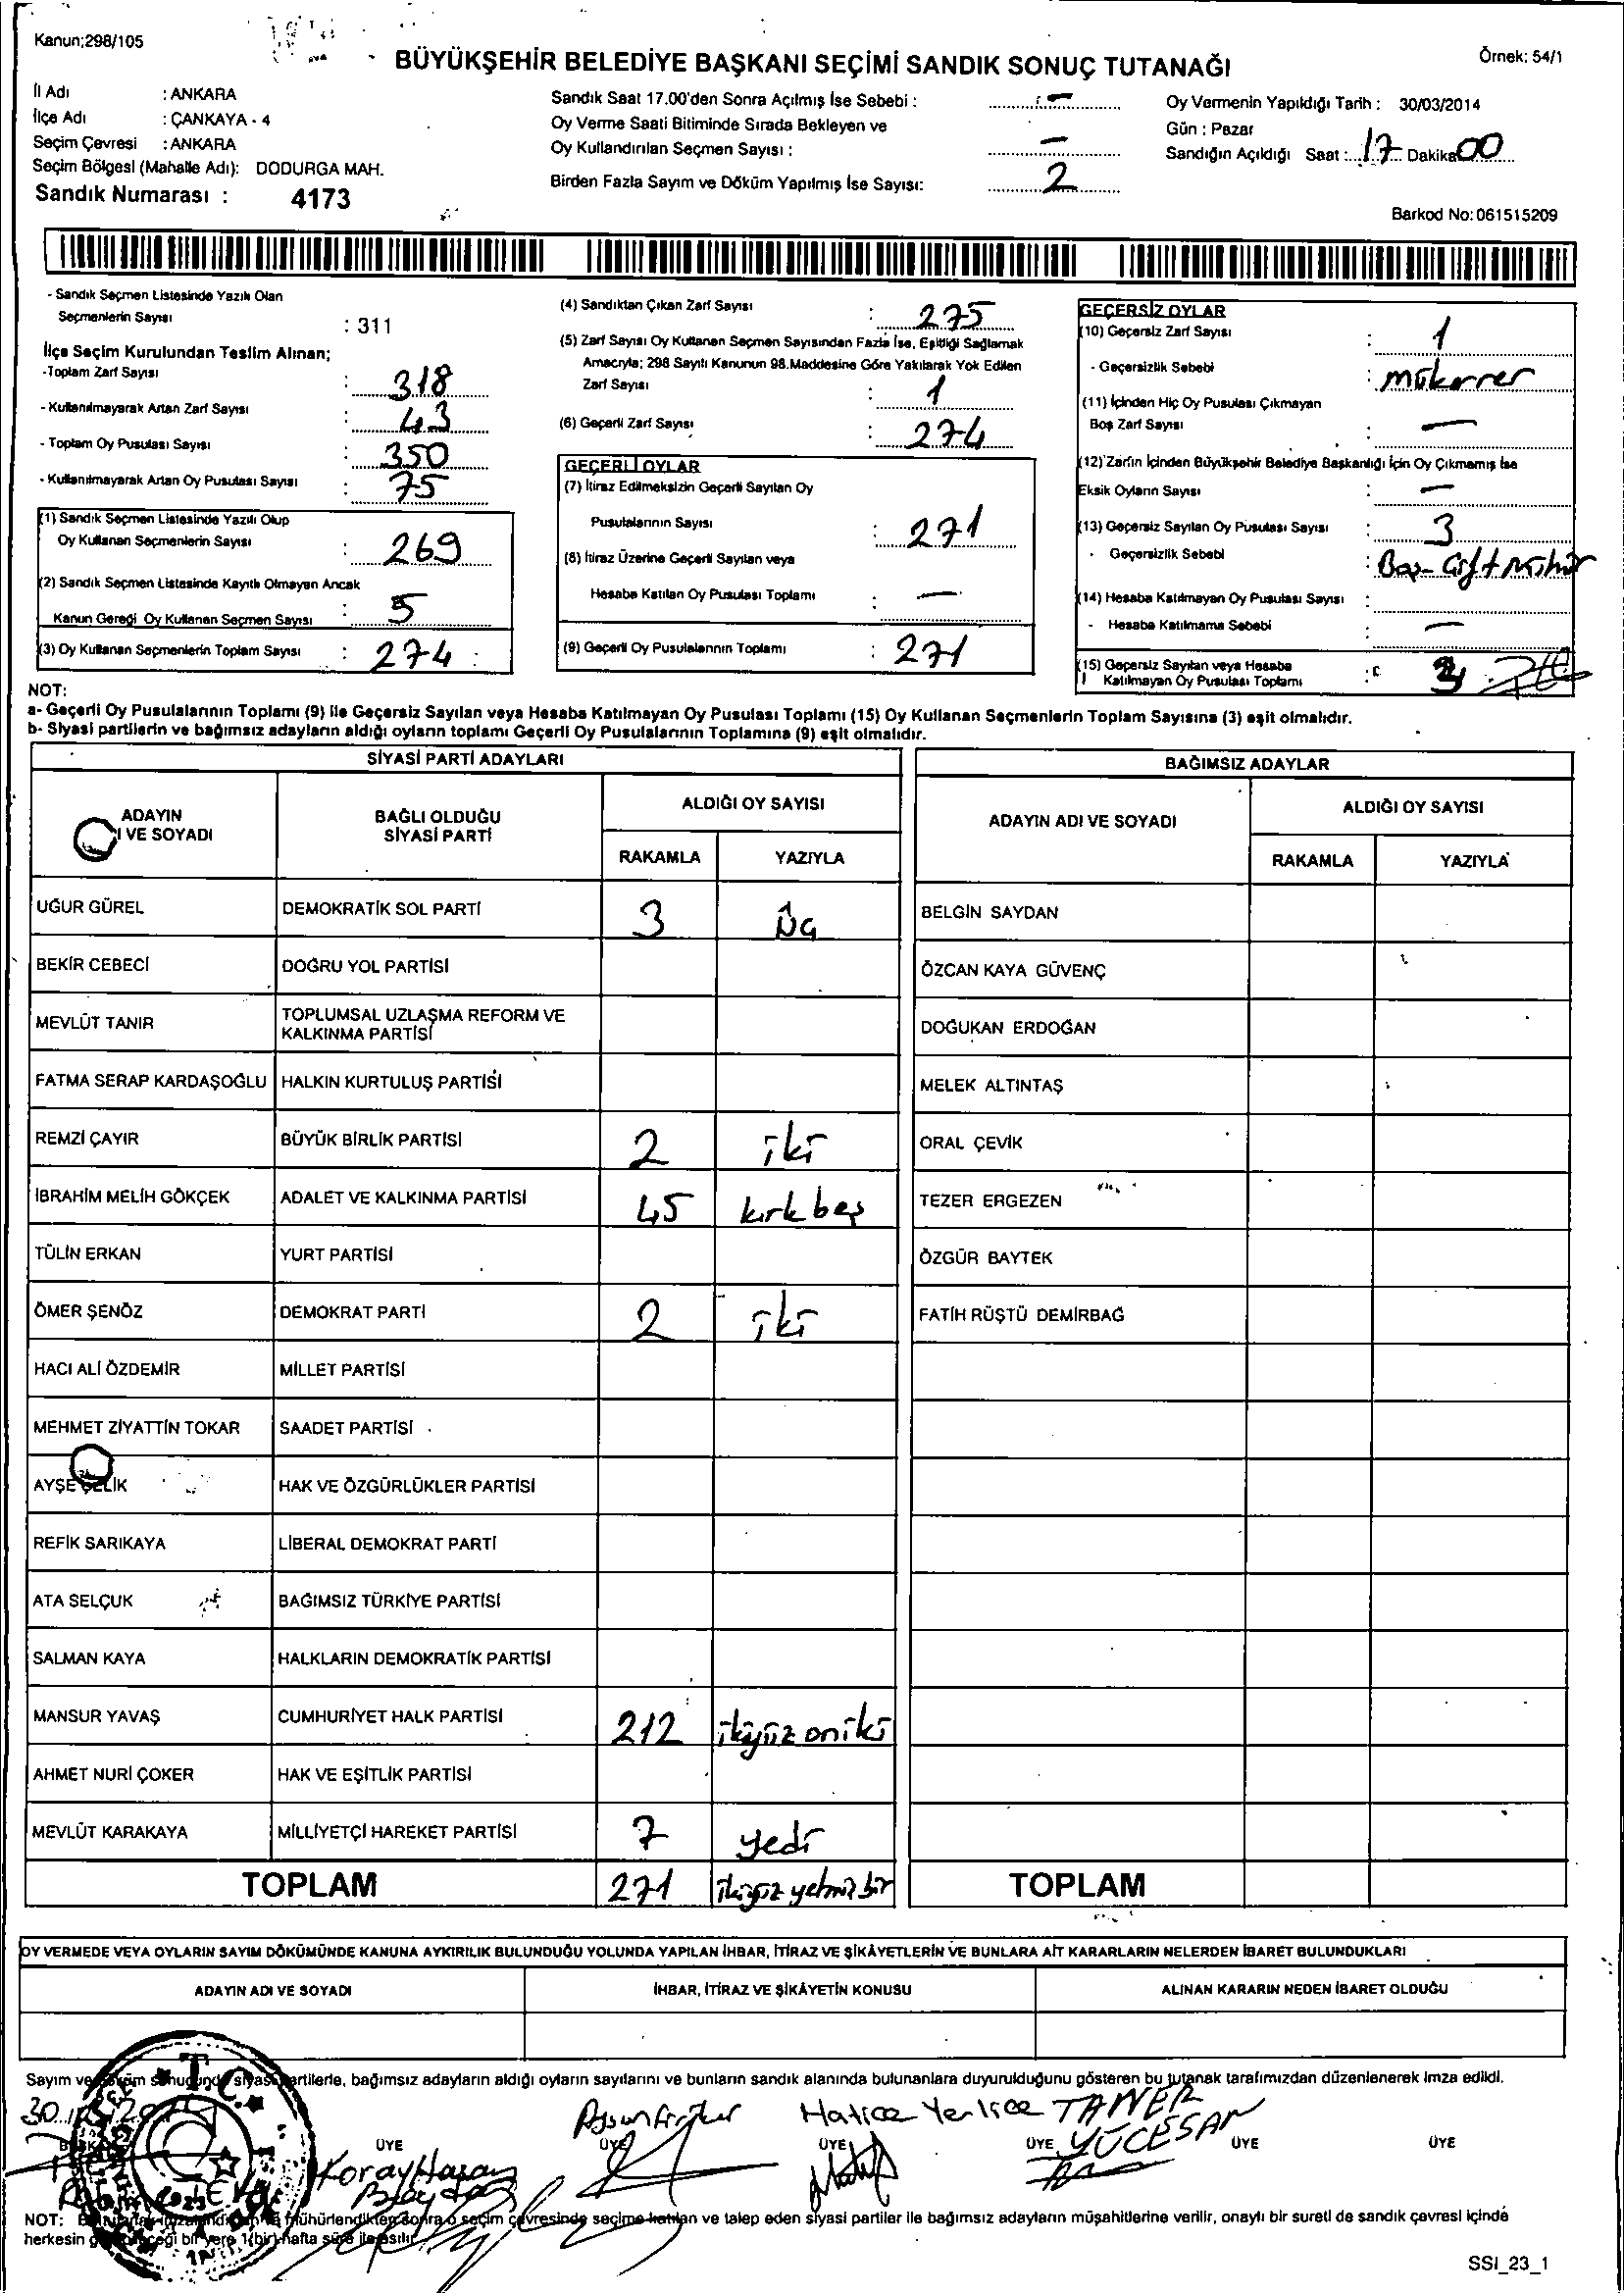 Kanun:298/105
BÜYÜKŞEHİR BELEDİYE BAŞKANI SEÇİMİ SANDIK SONUÇ TUTANAĞI
Örnek: 54/1
İl Adı : ANKARA
İlçe Adı : ÇANKAYA - 4
Seçim Çevresi : ANKARA
Seçim Bölgesi (Mahalle Adı): DODURGA MAH.
Sandık Numarası : 4173
Sandık Saat 17.00'den Sonra Açılmış İse Sebebi : –
Oy Verme Saati Bitiminde Sırada Bekleyen ve
Oy Kullandırılan Seçmen Sayısı : –
Birden Fazla Sayım ve Döküm Yapılmış İse Sayısı: 2
Oy Vermenin Yapıldığı Tarih : 30/03/2014
Gün : Pazar
Sandığın Açıldığı Saat : 17 Dakika 00
Barkod No: 061515209
- Sandık Seçmen Listesinde Yazılı Olan
Seçmenlerin Sayısı : 311
İlçe Seçim Kurulundan Teslim Alınan;
-Toplam Zarf Sayısı : 318
- Kullanılmayarak Artan Zarf Sayısı : 43
- Toplam Oy Pusulası Sayısı : 350
- Kullanılmayarak Artan Oy Pusulası Sayısı : 75
(1) Sandık Seçmen Listesinde Yazılı Olup
Oy Kullanan Seçmenlerin Sayısı : 269
(2) Sandık Seçmen Listesinde Kayıtlı Olmayan Ancak
Kanun Gereği Oy Kullanan Seçmen Sayısı : 5
(3) Oy Kullanan Seçmenlerin Toplam Sayısı : 274
(4) Sandıktan Çıkan Zarf Sayısı : 275
(5) Zarf Sayısı Oy Kullanan Seçmen Sayısından Fazla İse, Eşitliği Sağlamak
Amacıyla; 298 Sayılı Kanunun 98.Maddesine Göre Yakılarak Yok Edilen
Zarf Sayısı : 1
(6) Geçerli Zarf Sayısı : 274
GEÇERLİ OYLAR
(7) İtiraz Edilmeksizin Geçerli Sayılan Oy
Pusulalarının Sayısı : 271
(8) İtiraz Üzerine Geçerli Sayılan veya
Hesaba Katılan Oy Pusulası Toplamı : –
(9) Geçerli Oy Pusulalarının Toplamı : 271
GEÇERSİZ OYLAR
(10) Geçersiz Zarf Sayısı : 1
- Geçersizlik Sebebi : mükerrer
(11) İçinden Hiç Oy Pusulası Çıkmayan
Boş Zarf Sayısı : –
(12) Zarfın İçinden Büyükşehir Belediye Başkanlığı İçin Oy Çıkmamış İse
Eksik Oyların Sayısı : –
(13) Geçersiz Sayılan Oy Pusulası Sayısı : 3
- Geçersizlik Sebebi : Boş- Çift Mühür
(14) Hesaba Katılmayan Oy Pusulası Sayısı :
- Hesaba Katılmama Sebebi : –
(15) Geçersiz Sayılan veya Hesaba
Katılmayan Oy Pusulası Toplamı : 3
NOT:
a- Geçerli Oy Pusulalarının Toplamı (9) ile Geçersiz Sayılan veya Hesaba Katılmayan Oy Pusulası Toplamı (15) Oy Kullanan Seçmenlerin Toplam Sayısına (3) eşit olmalıdır.
b- Siyasi partilerin ve bağımsız adayların aldığı oyların toplamı Geçerli Oy Pusulalarının Toplamına (9) eşit olmalıdır.
SİYASİ PARTİ ADAYLARI
ADAYIN
I VE SOYADI
BAĞLI OLDUĞU
SİYASİ PARTİ
ALDIĞI OY SAYISI
RAKAMLA YAZIYLA
UĞUR GÜREL DEMOKRATİK SOL PARTİ 3 Üç
BEKİR CEBECİ DOĞRU YOL PARTİSİ
MEVLÜT TANIR TOPLUMSAL UZLAŞMA REFORM VE
KALKINMA PARTİSİ
FATMA SERAP KARDAŞOĞLU HALKIN KURTULUŞ PARTİSİ
REMZİ ÇAYIR BÜYÜK BİRLİK PARTİSİ 2 iki
İBRAHİM MELİH GÖKÇEK ADALET VE KALKINMA PARTİSİ 45 kırk beş
TÜLİN ERKAN YURT PARTİSİ
ÖMER ŞENÖZ DEMOKRAT PARTİ 2 iki
HACI ALİ ÖZDEMİR MİLLET PARTİSİ
MEHMET ZİYATTİN TOKAR SAADET PARTİSİ
AYŞE ÇELİK HAK VE ÖZGÜRLÜKLER PARTİSİ
REFİK SARIKAYA LİBERAL DEMOKRAT PARTİ
ATA SELÇUK BAĞIMSIZ TÜRKİYE PARTİSİ
SALMAN KAYA HALKLARIN DEMOKRATİK PARTİSİ
MANSUR YAVAŞ CUMHURİYET HALK PARTİSİ 212 ikiyüz oniki
AHMET NURİ ÇOKER HAK VE EŞİTLİK PARTİSİ
MEVLÜT KARAKAYA MİLLİYETÇİ HAREKET PARTİSİ 7 yedi
TOPLAM 271 ikiyüz yetmiş bir
BAĞIMSIZ ADAYLAR
ADAYIN ADI VE SOYADI
ALDIĞI OY SAYISI
RAKAMLA YAZIYLA
BELGİN SAYDAN
ÖZCAN KAYA GÜVENÇ
DOĞUKAN ERDOĞAN
MELEK ALTINTAŞ
ORAL ÇEVİK
TEZER ERGEZEN
ÖZGÜR BAYTEK
FATİH RÜŞTÜ DEMİRBAĞ
TOPLAM
OY VERMEDE VEYA OYLARIN SAYIM DÖKÜMÜNDE KANUNA AYKIRILIK BULUNDUĞU YOLUNDA YAPILAN İHBAR, İTİRAZ VE ŞİKÂYETLERİN VE BUNLARA AİT KARARLARIN NELERDEN İBARET BULUNDUKLARI
ADAYIN ADI VE SOYADI İHBAR, İTİRAZ VE ŞİKÂYETİN KONUSU ALINAN KARARIN NEDEN İBARET OLDUĞU
Sayım ve siyasi partilerle, bağımsız adayların aldığı oyların sayılarını ve bunların sandık alanında bulunanlara duyurulduğunu gösteren bu tutanak tarafımızdan düzenlenerek imza edildi.
T.C.
Hatice Yerlice TANER
YÜCESAN
ÜYE ÜYE ÜYE ÜYE ÜYE ÜYE
Koray Hasan
NOT: mühürlendikten sonra o seçim çevresinde seçime katılan ve talep eden siyasi partiler ile bağımsız adayların müşahitlerine verilir, onaylı bir sureti de sandık çevresi içinde
herkesin bir yere 1(bir) hafta süre ile asılır.
SSI_23_1